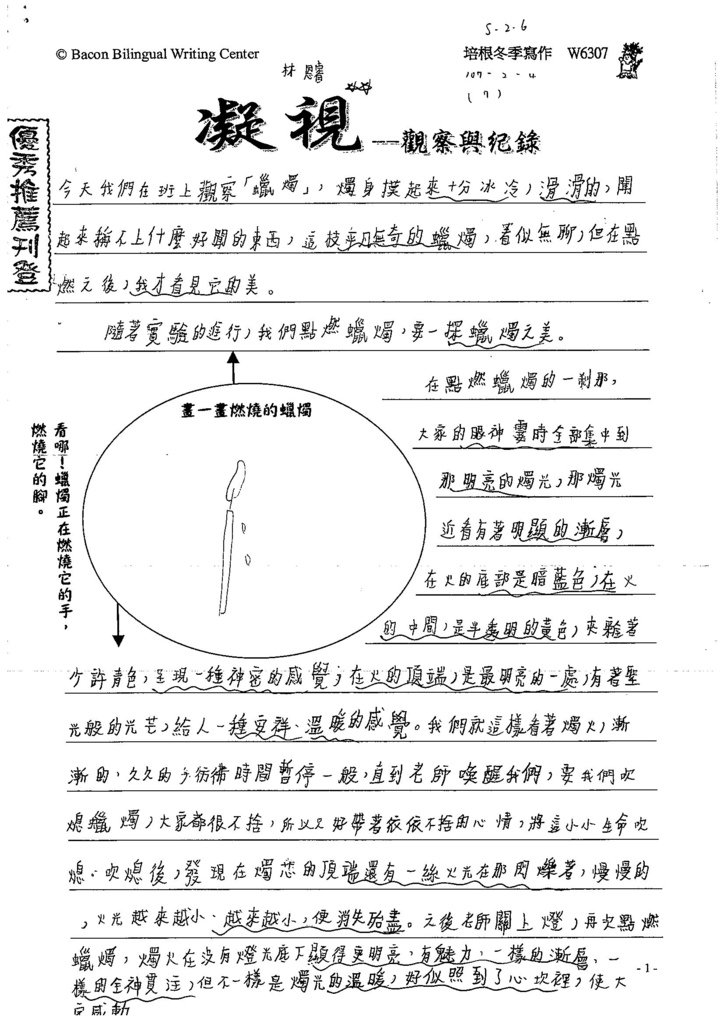 5-2-6
© Bacon Bilingual Writing Center
培根冬季寫作 W6307
林恩睿
107-2-4
(7)
凝視—觀察與紀錄
優秀推薦刊登
今天我們在班上觀察「蠟燭」，燭身摸起來十分冰冷，滑滑的，聞
起來稱不上什麼好聞的東西，這枝平凡無奇的蠟燭，看似無聊，但在點
燃之後，我才看見它的美。
隨著實驗的進行，我們點燃蠟燭，要一探蠟燭之美。
在點燃蠟燭的一剎那，
畫一畫燃燒的蠟燭
大家的眼神霎時全部集中到
看哪！蠟燭正在燃燒它的手，
燃燒它的腳。
那明亮的燭光，那燭光
近看有著明顯的漸層，
在火的底部是暗藍色，在火
的中間，是半透明的黃色，夾雜著
少許青色，呈現一種神密的感覺，在火的頂端，是最明亮的一處，有著聖
光般的光芒，給人一種安祥、溫暖的感覺。我們就這樣看著燭火，漸
漸的，久久的，彷彿時間暫停一般，直到老師喚醒我們，要我們吹
熄蠟燭，大家都很不捨，所以只好帶著依依不捨的心情，將這小小生命吹
熄。吹熄後，發現在燭芯的頂端還有一絲火光在那閃爍著，慢慢的
，火光越來越小、越來越小，便消失殆盡。之後老師關上燈，再次點燃
蠟燭，燭火在沒有燈光底下顯得更明亮，有魅力，一樣的漸層、一
樣的全神貫注，但不一樣是燭光的溫暖，好似照到了心坎裡，使大
家感動
-1-